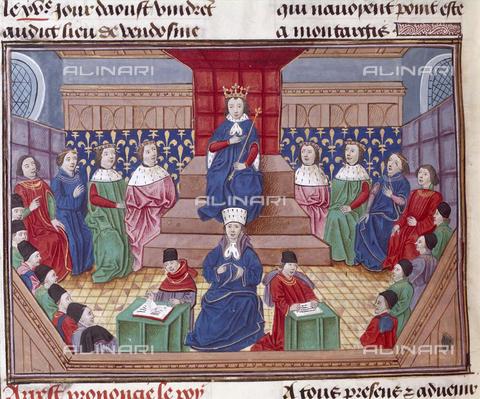 le xvᵉ jour daoust vindret
audict lieu de vendosme
qui nauoyent point este
a montargis
ALINARI ALINARI
ALINARI
ALINARI ALINARI
ALINARI
ALINARI ALINARI
Arrest prononcie le roy
A tous presens z aduenir